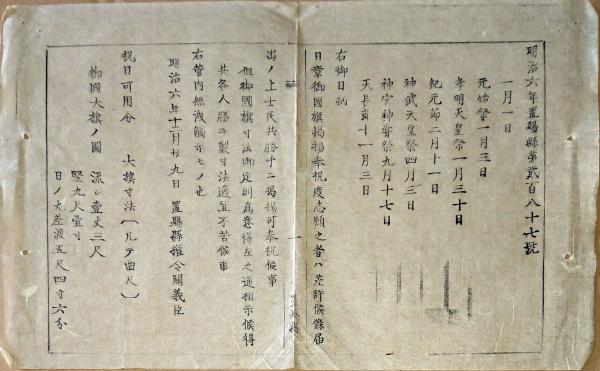 明治六年置賜縣第貳百八十七號
一月一日
元始祭一月三日
孝明天皇祭一月三十日
紀元節二月十一日
神武天皇祭四月三日
神甞神甞祭九月十七日
天長節十一月三日
右御日柄
日章御國旗揭揚奉祝度志願之者ハ差許候條届
出ノ上士民共勝手ニ揭揚可奉祝候事
但御國旗寸法御定則爲意得左之通相示候得
共各人勝手製寸法適宜不苦候事
右管内無洩觸示モノ也
明治六年十二月廿九日 置賜縣權令關義臣
祝日可用分 大旗寸法
御國大旗ノ圖 流レ壹丈三尺
竪九尺壹寸
日ノ丸差渡五尺四寸六分
置賜縣